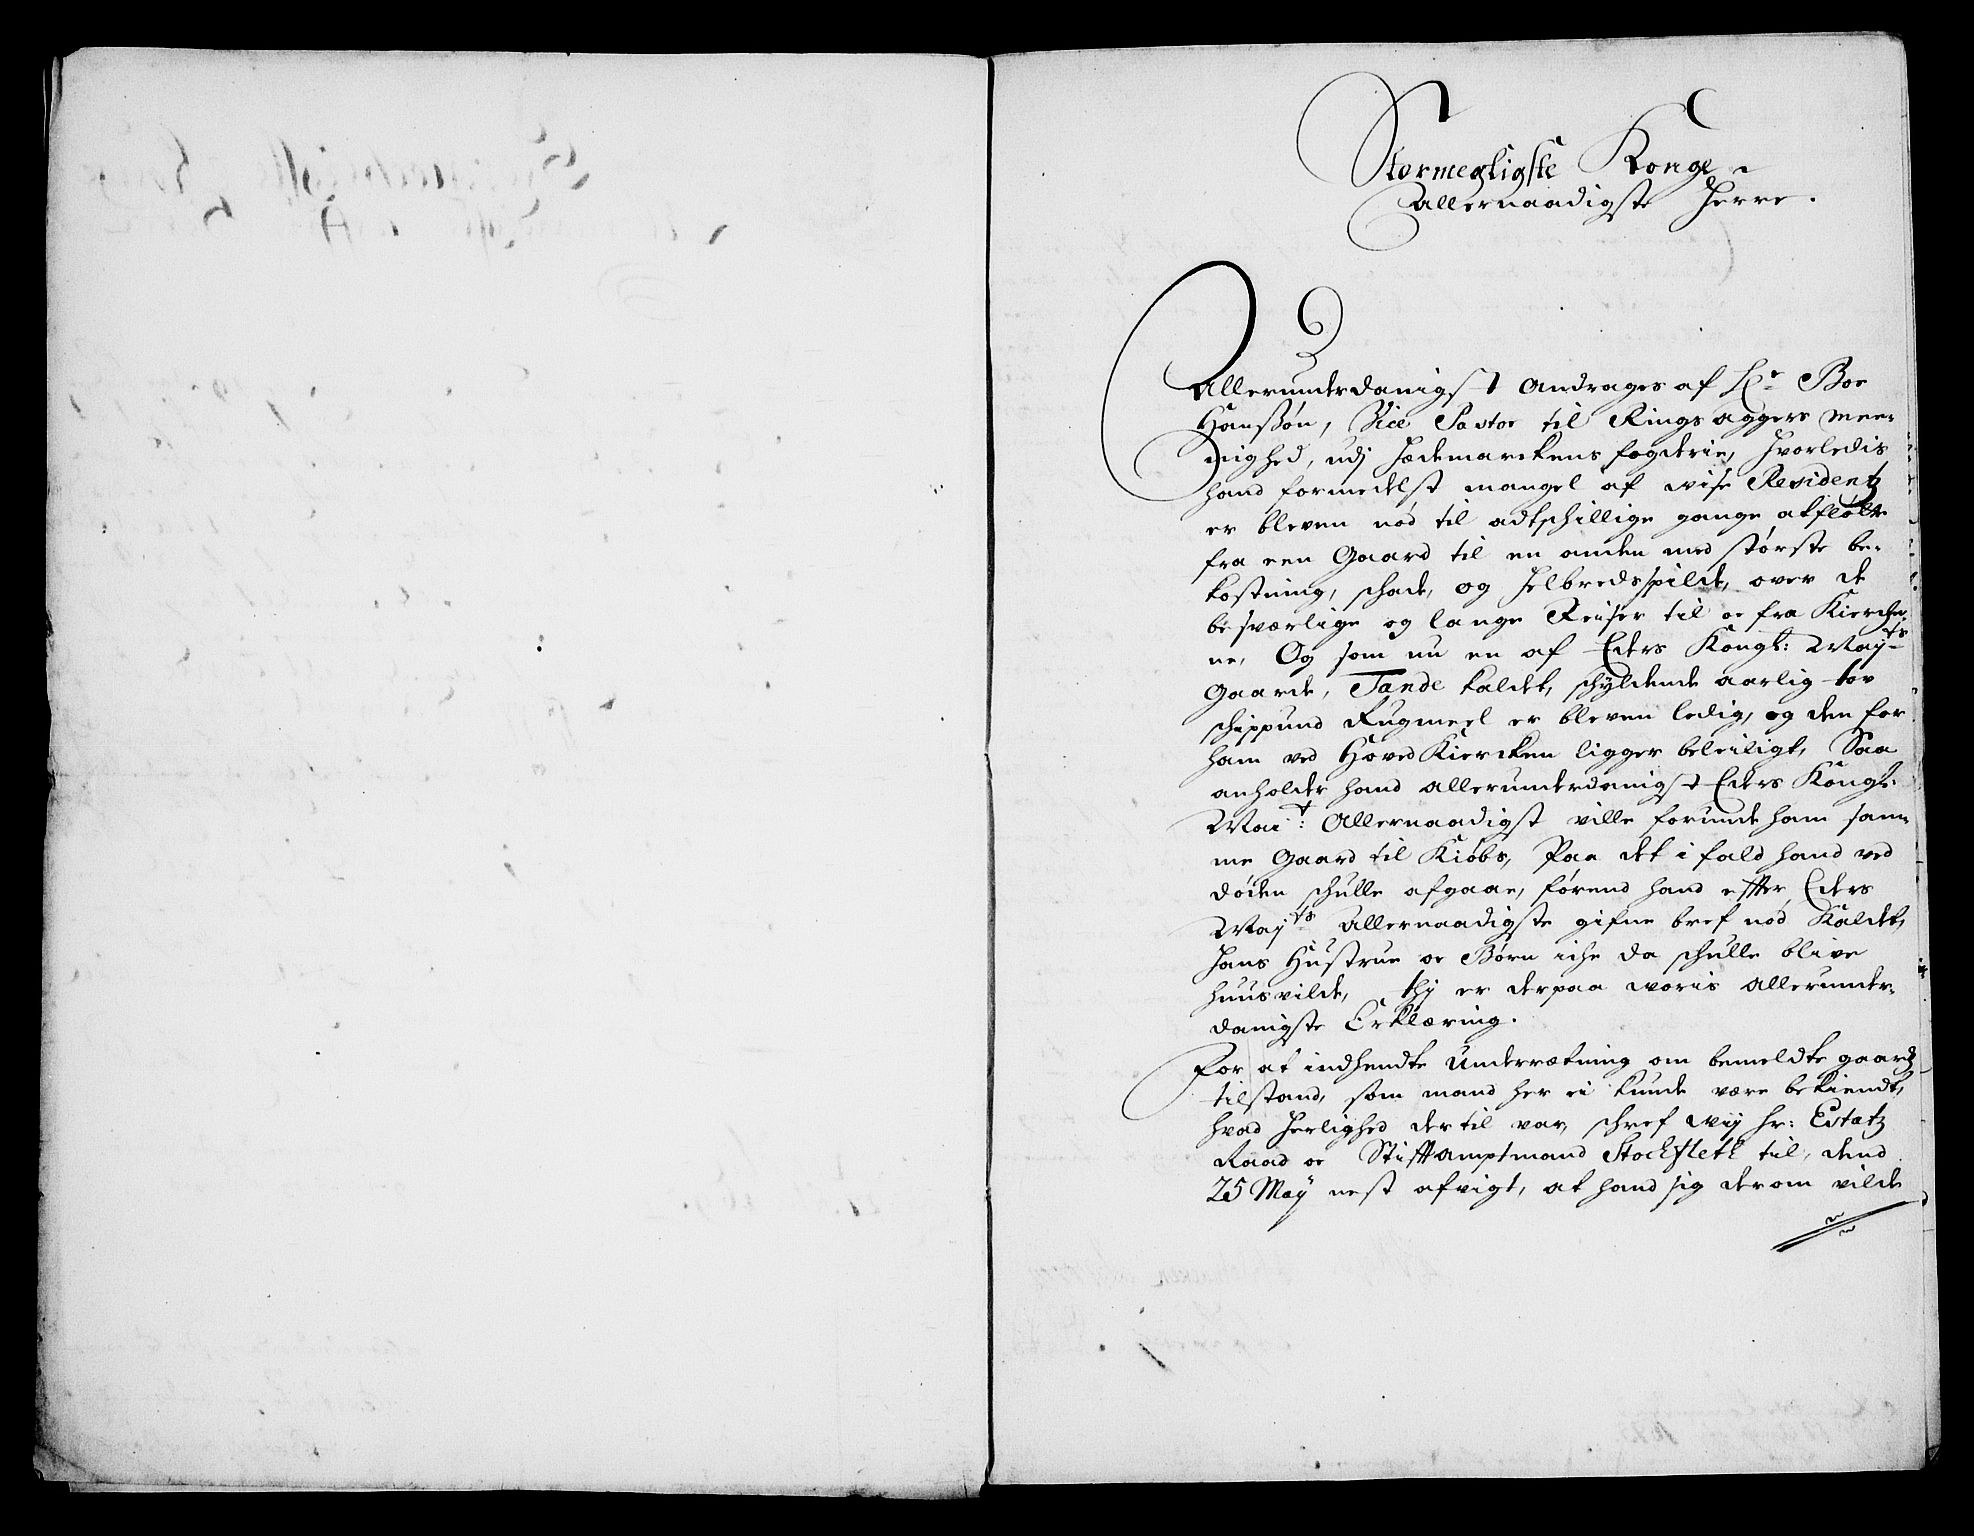 Stormegtigste Konge
Allernaadigste Herre.
Allerunderdanigst andrages af Hr Boe
Hanssøn, Vice Pastor til Ringsaggers mee-
nighed, udj Hedemarckens fogderie, hvorledis
hand formedelst mangel af wise Residentz
er bleven nød til adtschillige gange at fløtte
fra een Gaard til en anden med største be-
kostning, schade, og helbreds spilde, over de
besværlige og lange Reiser til oc fra Kiercher
ne, Og som nu en af Eders Kongl: Mayts
Gaarde, Tande kaldet, schyldende aarlig tov
schippund Rugmeel er bleven ledig, og den for
ham ved HovedKiercken ligger beleiligt, Saa
anholder hand allerunderdanigst Eders Kongl:
Mait: Allernaadigst ville forunde ham sam-
me Gaard til Kiøbs, Paa det i fald hand ved
døden schulle afgaae, førend hand effter Eders
Mayts Allernaadigste gifne bref nød Kaldet,
hans Hustrue oc Børn iche da schulle blive
huusvilde, thj er derpaa woris Allerunder-
danigste Erklæring.
For at indhendte Underrætning om bemeldte gaardz
tilstand, som mand her ei kunde være bekiendt,
hvad herlighed dertil var, schref wij hr: Estatz
Raad oc Stifftamptmand Stockfleth til, dend
25 May nest afvigt, at hand sig derom vilde